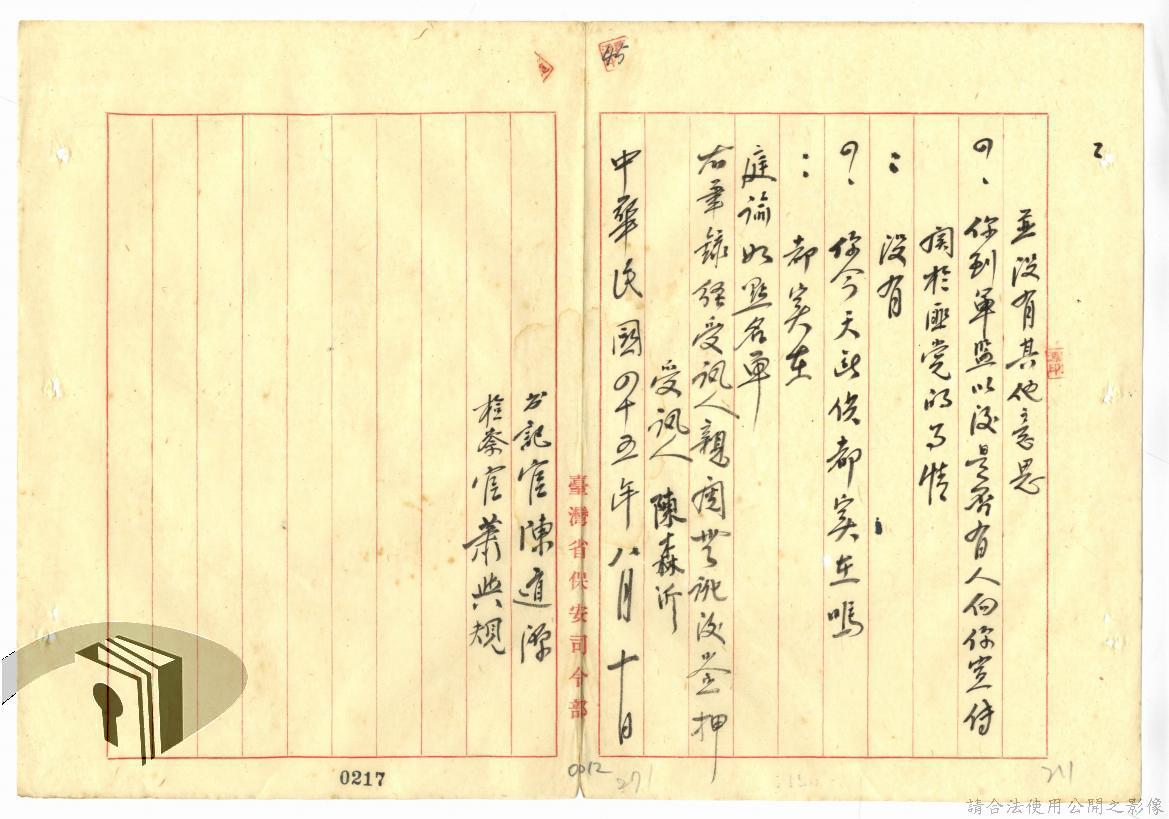 并没有其他意思
问、你到軍監以後是否有人向你宣传
関於匪党的事情
：没有
问、你今天所供都实在嗎
：都实在
庭諭如點名單
右筆錄經受訊人親閱無訛後签押
受訊人 陳森沂
中華民國四十五年八月十日
書記官陳道源
檢察官蕭与規
臺灣省保安司令部
0217
0012
271
211
請合法使用公開之影像